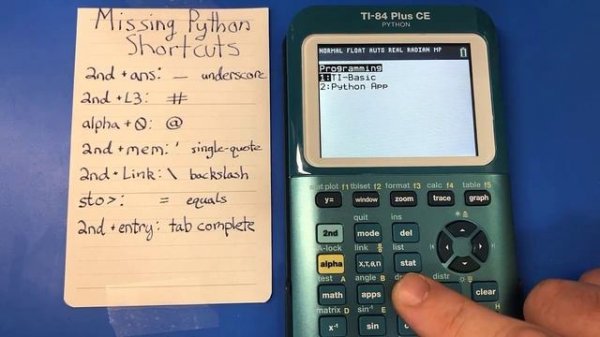 Missing Python
Shortcuts
2nd + ans: _ underscore
2nd + L3: #
alpha + 0: @
2nd + mem: ' single-quote
2nd + Link: \ backslash
sto>: = equals
2nd + entry: tab complete
TI-84 Plus CE
PYTHON
NORMAL FLOAT AUTO REAL RADIAN MP
Programming
1:TI-Basic
2:Python App
stat plot f1 tblset f2 format f3 calc f4 table f5
y= window zoom trace graph
quit ins
2nd mode del
A-lock link list
alpha X,T,θ,n stat
test A angle B distr
math apps clear
matrix D sin⁻¹ E H
x⁻¹ sin